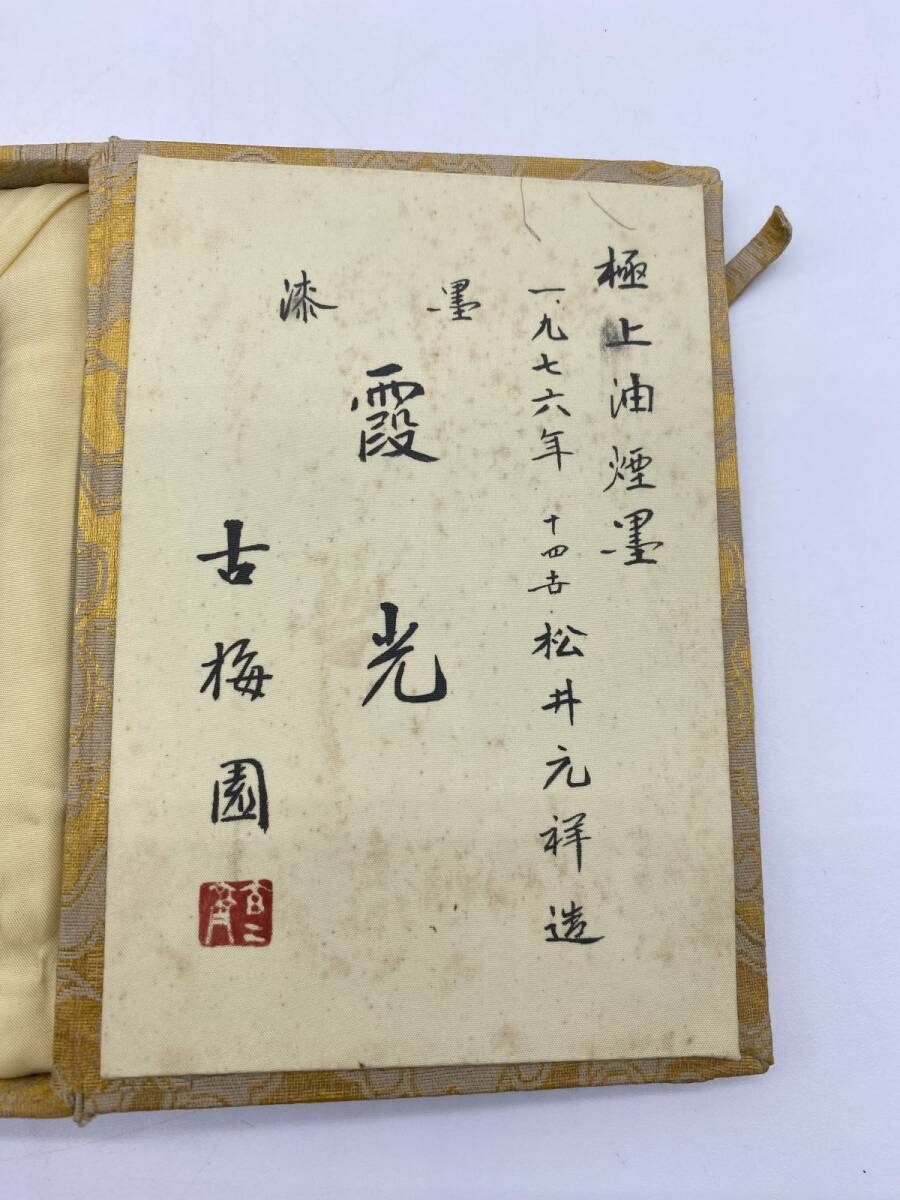 極上油煙墨
一.九七六年 十四世 松井元祥造
漆墨
霞光
古梅園